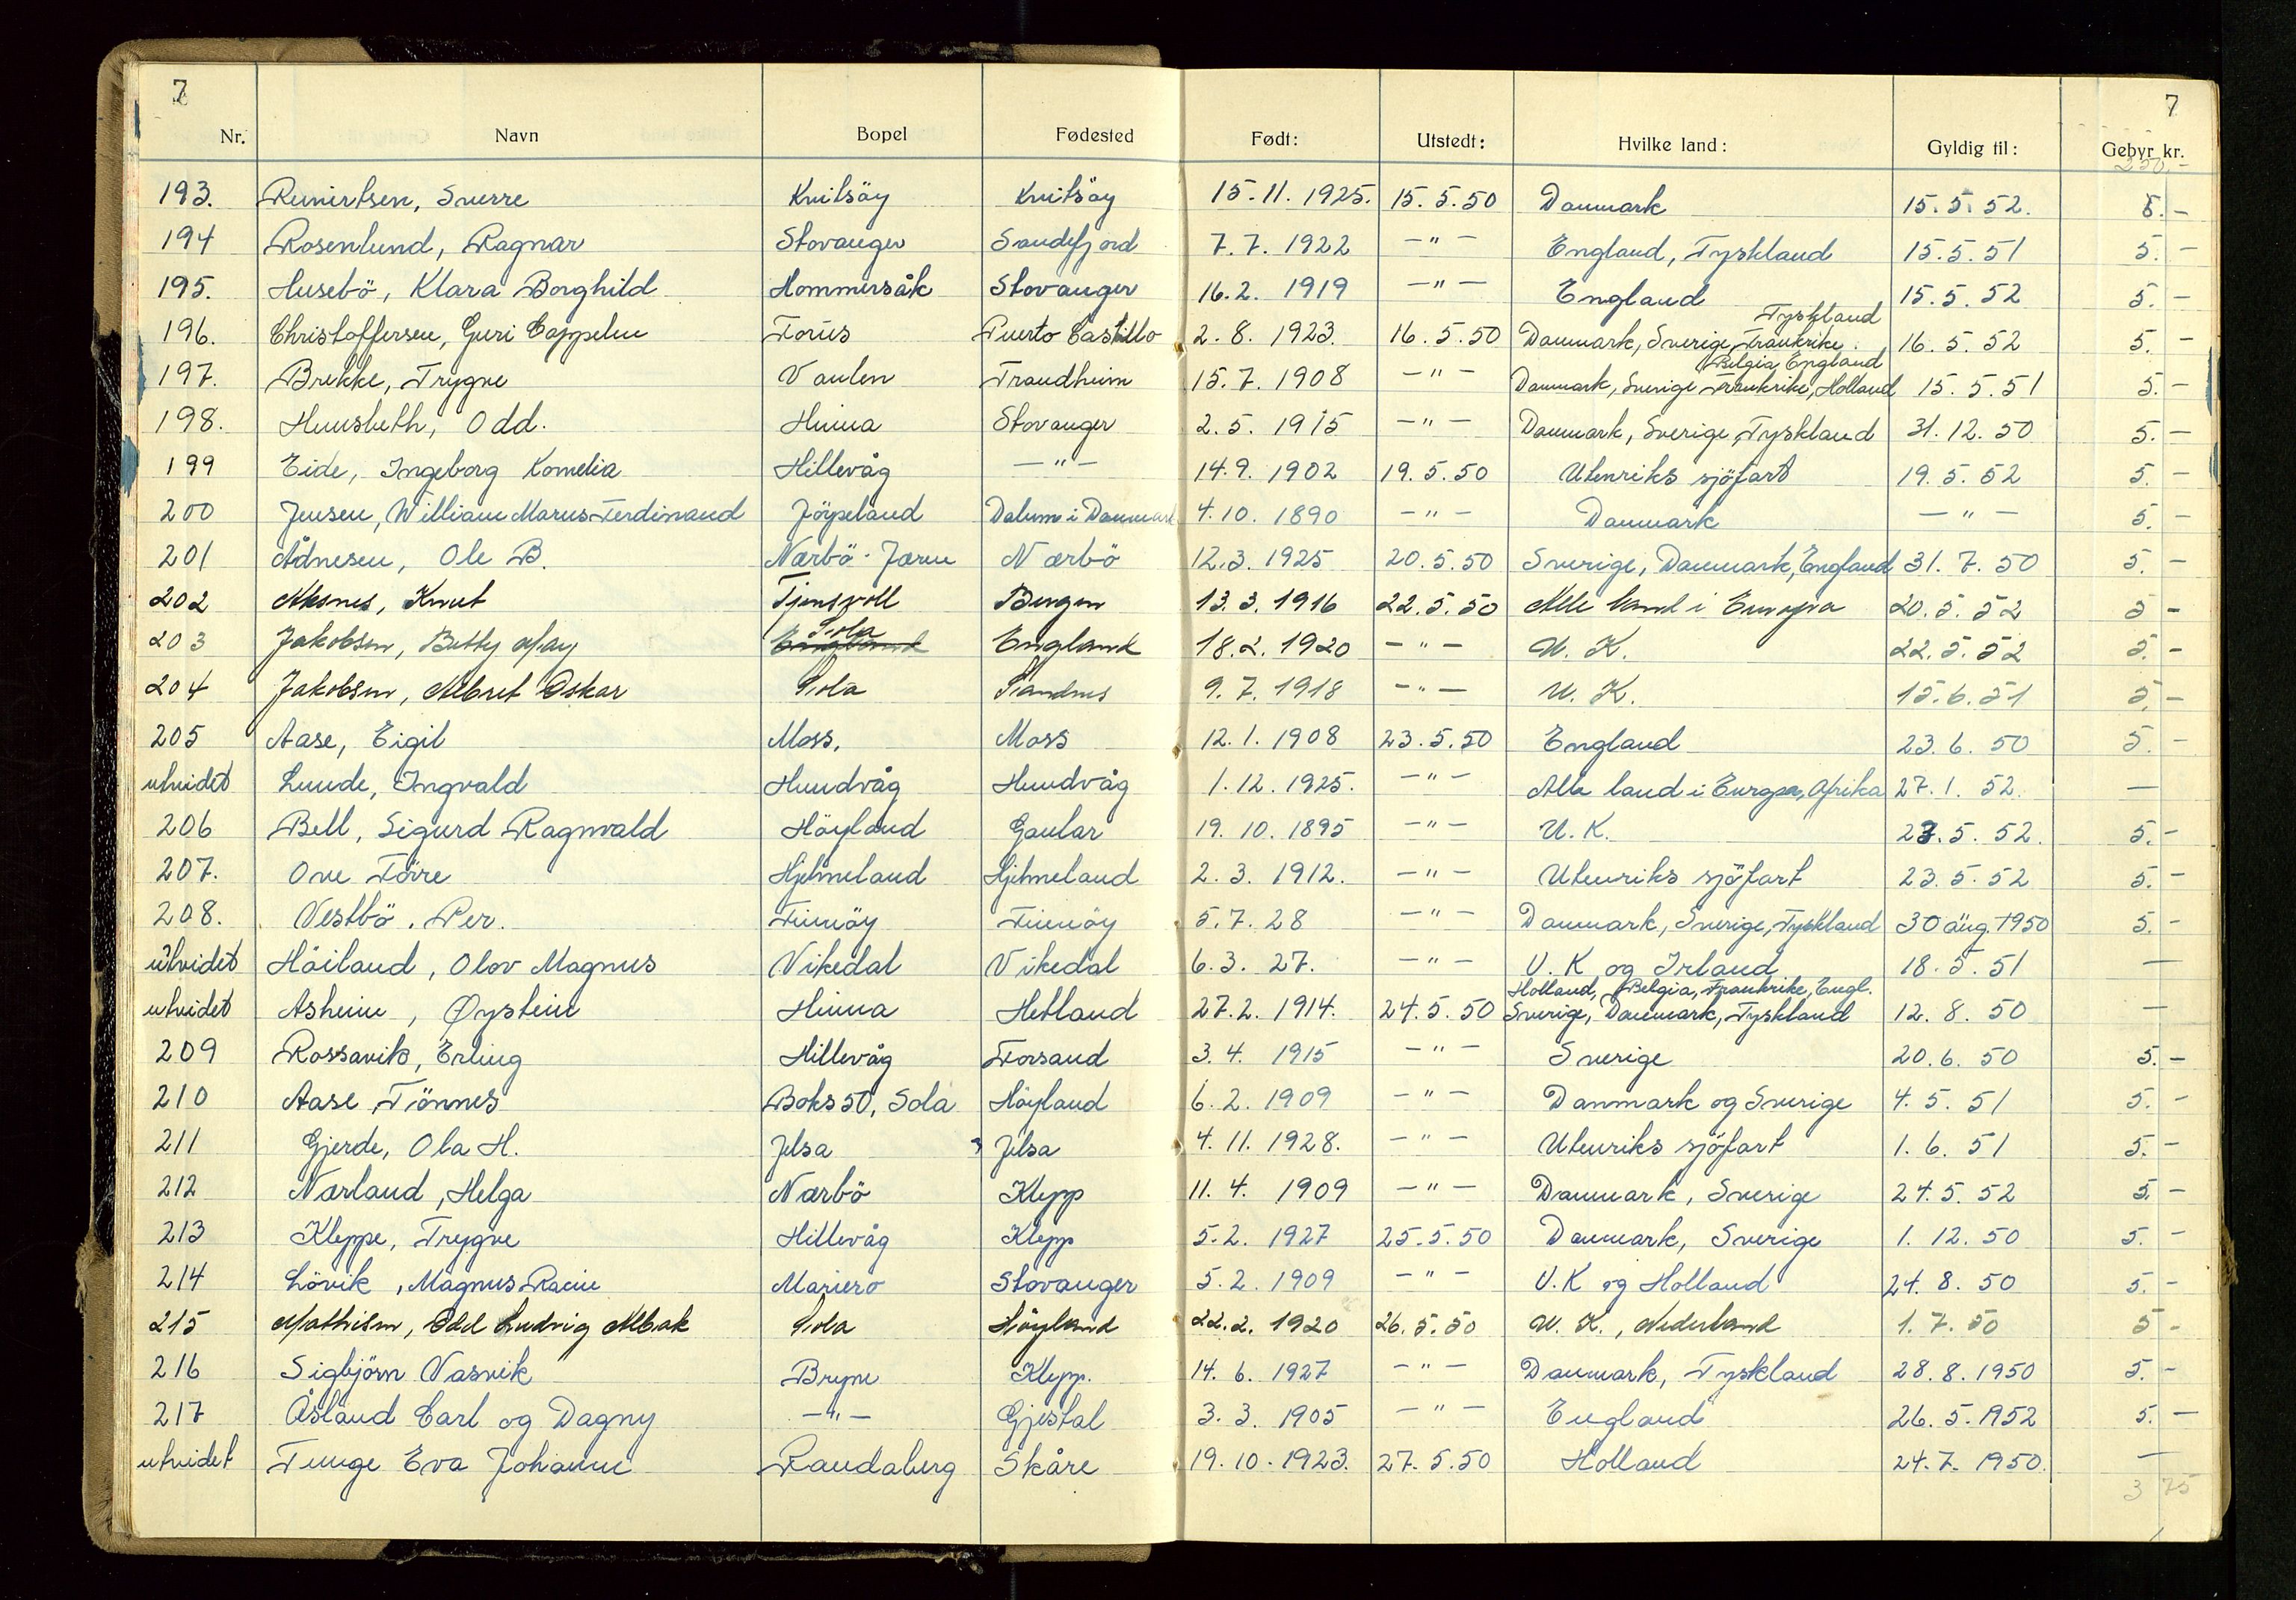 7
7
Nr. Navn Bopel Fødested Født: Utstedt: Hvilke land: Gyldig til: Gebyr kr.
250,-
193. Reinertsen, Sverre Kvitsöy Kvitsöy 15.11.1925. 15.5.50 Danmark 15.5.52. 5.-
194 Rosenlund, Ragnar Stavanger Sandefjord 7.7.1922 -"- England, Tyskland 15.5.51 5.-
195. Husebö, Klara Borghild Hommersåk Stavanger 16.2.1919 -"- England 15.5.52 5.-
Tyskland
196. Christoffersen, Guri Cappelen Forus Puerto Castillo 2.8.1923. 16.5.50 Danmark, Sverige, Frankrike. 16.5.52 5.-
Belgia, England
197. Brekke, Trygve Vaulen Trondheim 15.7.1908 -"- Danmark, Sverige Frankrike, Holland 15.5.51 5.-
198. Hunsbeth, Odd. Hinna Stavanger 2.5.1915 -"- Danmark, Sverige, Tyskland 31.12.50 5.-
199 Eide, Ingeborg Kornelia Hillevåg -"- 14.9.1902 19.5.50 Utenriks sjöfart 19.5.52 5.-
200 Jensen, William Marius Ferdinand Jörpeland Dalum i Danmark 4.10.1890 -"- Danmark -"- 5.-
201 Ådnesen, Ole B. Nærbö-Jæren Nærbö 12.3.1925 20.5.50 Sverige, Danmark, England 31.7.50 5.-
202 Aksnes, Knut Tjensvoll Bergen 13.3.1916 22.5.50 Alle land i Europa 20.5.52 5-
Sola
203 Jakobsen, Betty May England England 18.2.1920 -"- U.K. 22.5.52 5.-
204 Jakobsen, Albret Oskar Sola Sandnes 9.7.1918 -"- U.K. 15.6.51 5.-
205 Aase, Eigil Moss, Moss 12.1.1908 23.5.50 England 23.6.50 5.-
utvidet Lunde, Ingvald Hundvåg Hundvåg 1.12.1925. -"- Alle land i Europa, Afrika 27.1.52. —
206 Bell, Sigurd Ragnvald Höyland Gaular 19.10.1895 -"- U.K. 23.5.52. 5.-
207. Ove Törre Hjelmeland Hjelmeland 2.3.1912. -"- Utenriks sjöfart 23.5.52 5.-
208. Vestbö, Per. Finnöy Finnöy 5.7.28 -"- Danmark, Sverige, Tyskland 30 aug 1950 5.-
utvidet Höiland, Olov Magnus Vikedal Vikedal 6.3.27. -"- U.K og Irland 18.5.51 —
Holland, Belgia, Frankrike, Engl.
utvidet Asheim, Øystein Hinna Hetland 27.2.1914. 24.5.50 Sverige, Danmark, Tyskland 12.8.50 —
209 Rossavik, Erling Hillevåg Forsand 3.4.1915 -"- Sverige 20.6.50 5.-
210 Aase, Tönnes Boks 50, Sola Höyland 6.2.1909 -"- Danmark og Sverige 4.5.51 5.-
211 Gjerde, Ola H. Jelsa Jelsa 4.11.1928. -"- Utenriks sjöfart 1.6.51 5.-
212 Nærland, Helga Nærbö Klepp 11.4.1909 -"- Danmark, Sverige 24.5.52 5.-
213 Kleppe, Trygve Hillevåg Klepp 5.2.1927 25.5.50 Danmark, Sverige 1.12.50 5.-
214 Lövik, Magnus Mariero Stavanger 5.2.1909 -"- U.K og Holland 24.8.50 5.-
215 Mathisen, Odd Ludvig Sola Höyland 22.2.1920 26.5.50 U.K., Nederland 1.7.50 5-
216 Sigbjörn Vasvik Bryne Klepp. 14.6.1927 -"- Danmark, Tyskland 28.8.1950 5.-
217 Åsland Carl og Dagny -"- Gjestal 3.3.1905 -"- England 26.5.1952 5.-
utvidet Tunge Eva Johanne Randaberg Skåre 19.10.1923. 27.5.50 Holland 24.7.1950. —
375